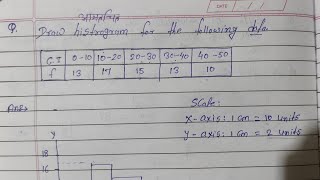 आयतचित्र
Q. Draw histogram for the following data.
C.I 0-10 10-20 20-30 30-40 40-50
f 13 17 15 13 10
Ans:-
Scale:
X-axis: 1 cm = 10 units
Y-axis: 1 cm = 2 units
y
18
16